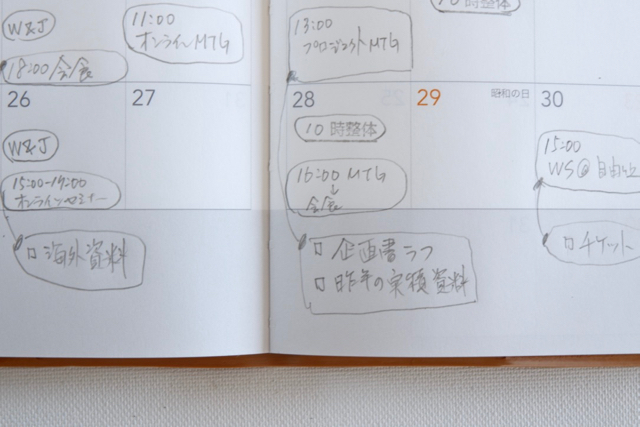 W&J
18:00 会食
11:00
オンラインMTG
13:00
プロジェクトMTG
10時整体
26
27
28
29
昭和の日
30
W&J
オンラインセミナー
10時整体
16:00 MTG
↓
会食
15:00
WS@自由
□ 海外資料
□ 企画書ラフ
□ 昨年の実績資料
□チケット